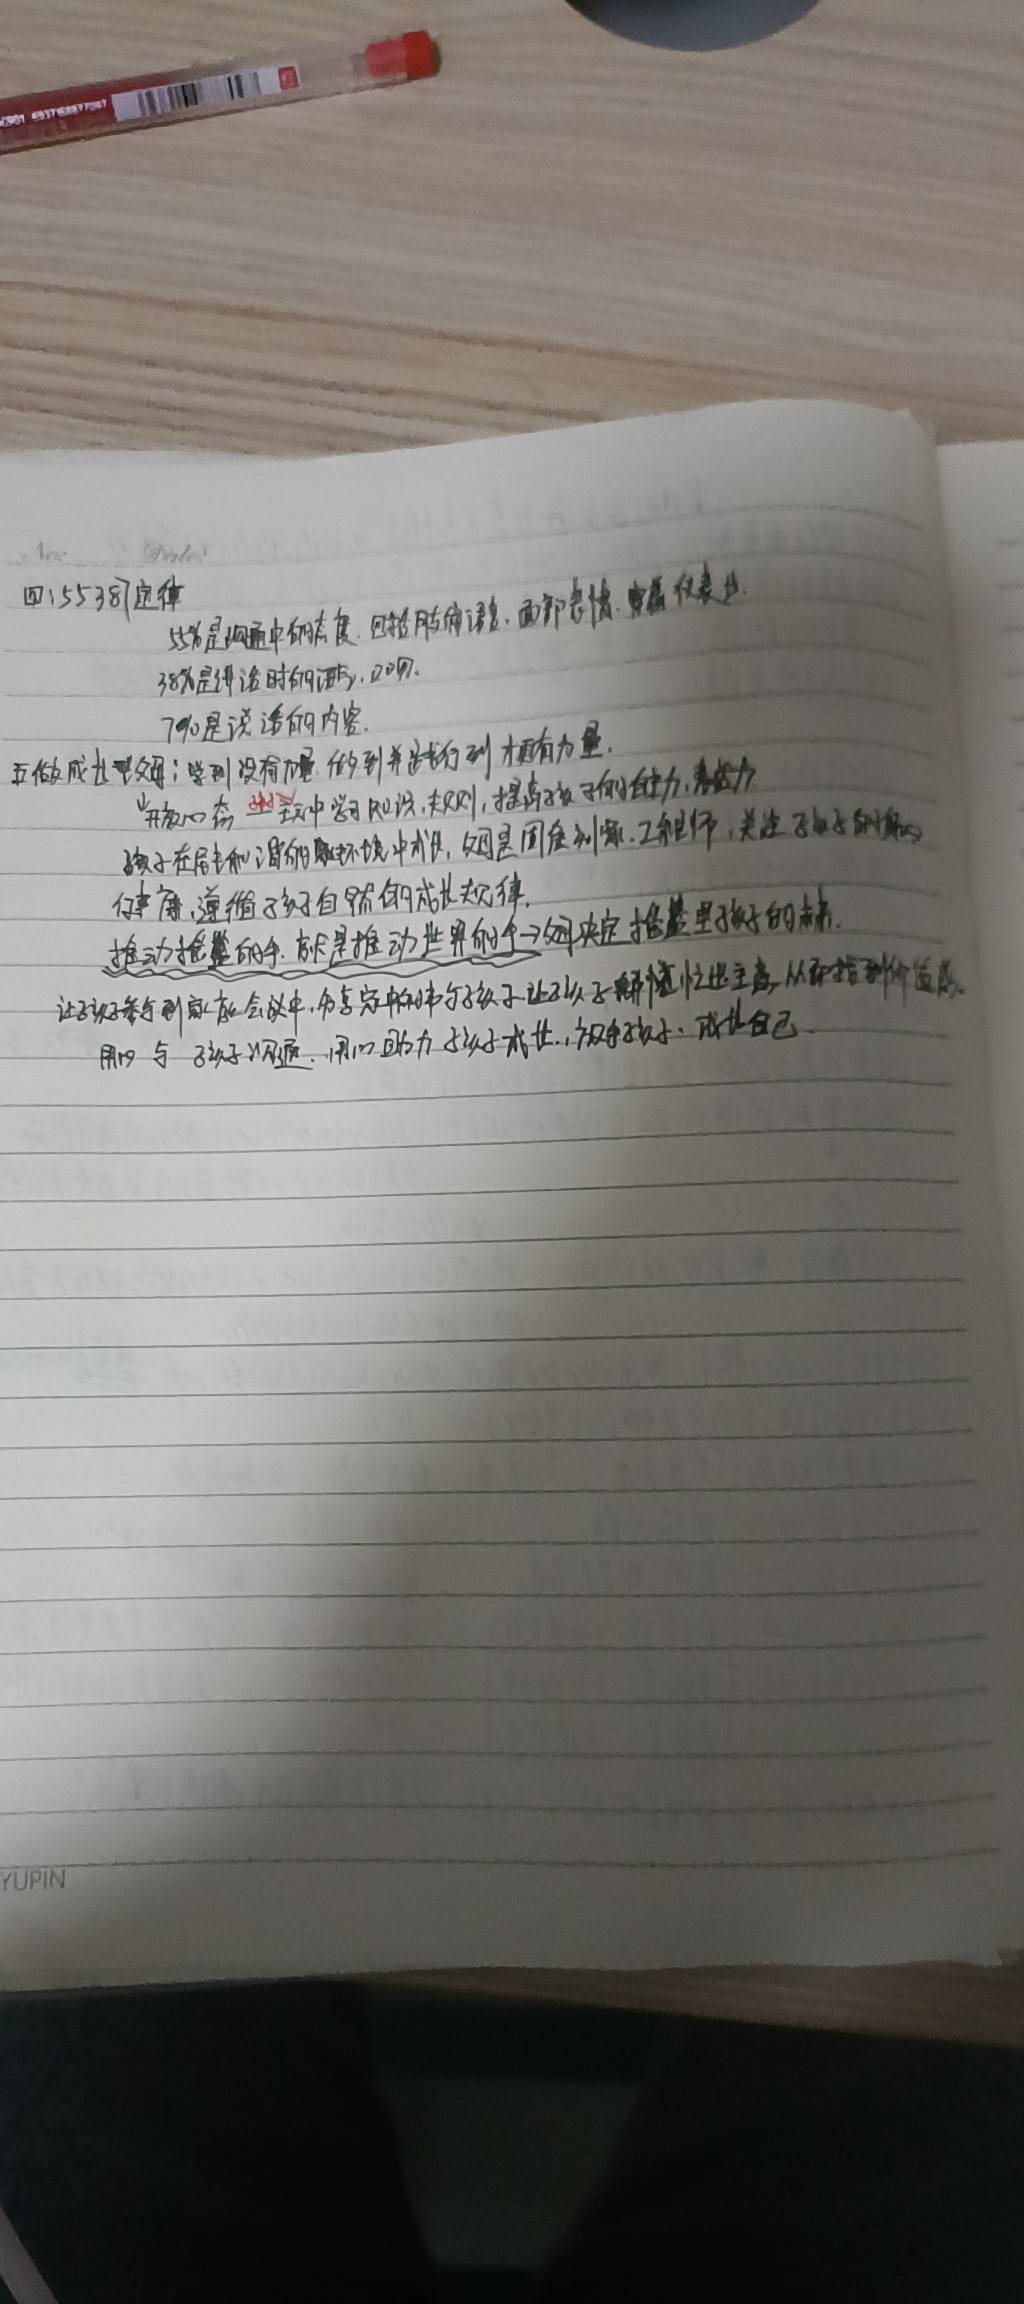 6937168877067
No. Date
四:55387定律
55%是沟通中的态度.包括肢体语言.面部表情.仪表等.
38%是讲话时的语气.
7%是说话的内容.
五做成长型父母:学到没有力量.做到并运行到才更有力量.
开放心态 中学习知识,规则,提高孩子的自
孩子在 和谐的 环境中成长,父母是 工程师,关注孩子的
遵循孩子自然的成长规律.
推动摇篮的手.就是推动世界的手→父母决定摇篮里孩子的未来.
让孩子参与到家庭会议中.分享家中的 与孩子.让孩子 主意,从而找到价值感.
用心与孩子沟通.用心助力孩子成长. 孩子.成长自己.
YUPIN